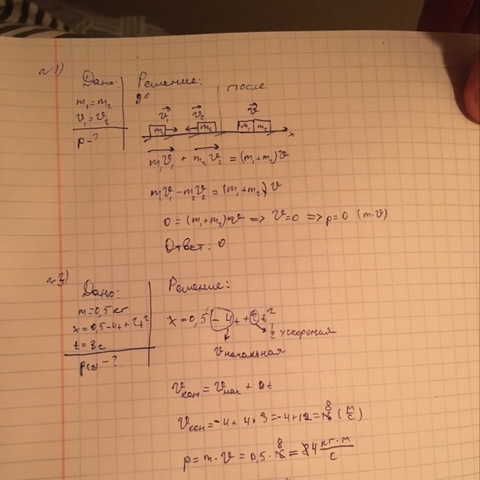 №1)
Дано:
m₁=m₂
v₁=v₂
p-?
Решение:
до
после
v₁ v₂ v
m₁ m₂ m₁ m₂ x
m₁v₁ + m₂v₂ = (m₁+m₂)v
m₁v₁-m₂v₂=(m₁+m₂)v
0=(m₁+m₂)v => v=0 => p=0 (m·v)
Ответ: 0
№3)
Дано:
m=0,5 кг
x=0,5-4t+2t²
t=3c
p(3)-?
Решение:
x=0,5-4t+2t²
1/2 ускорения
v начальная
vкон = vнач + at
vкон=-4+4·3=-4+12=8 (м/с)
p=m·v=0,5·8=4 кг·м/с